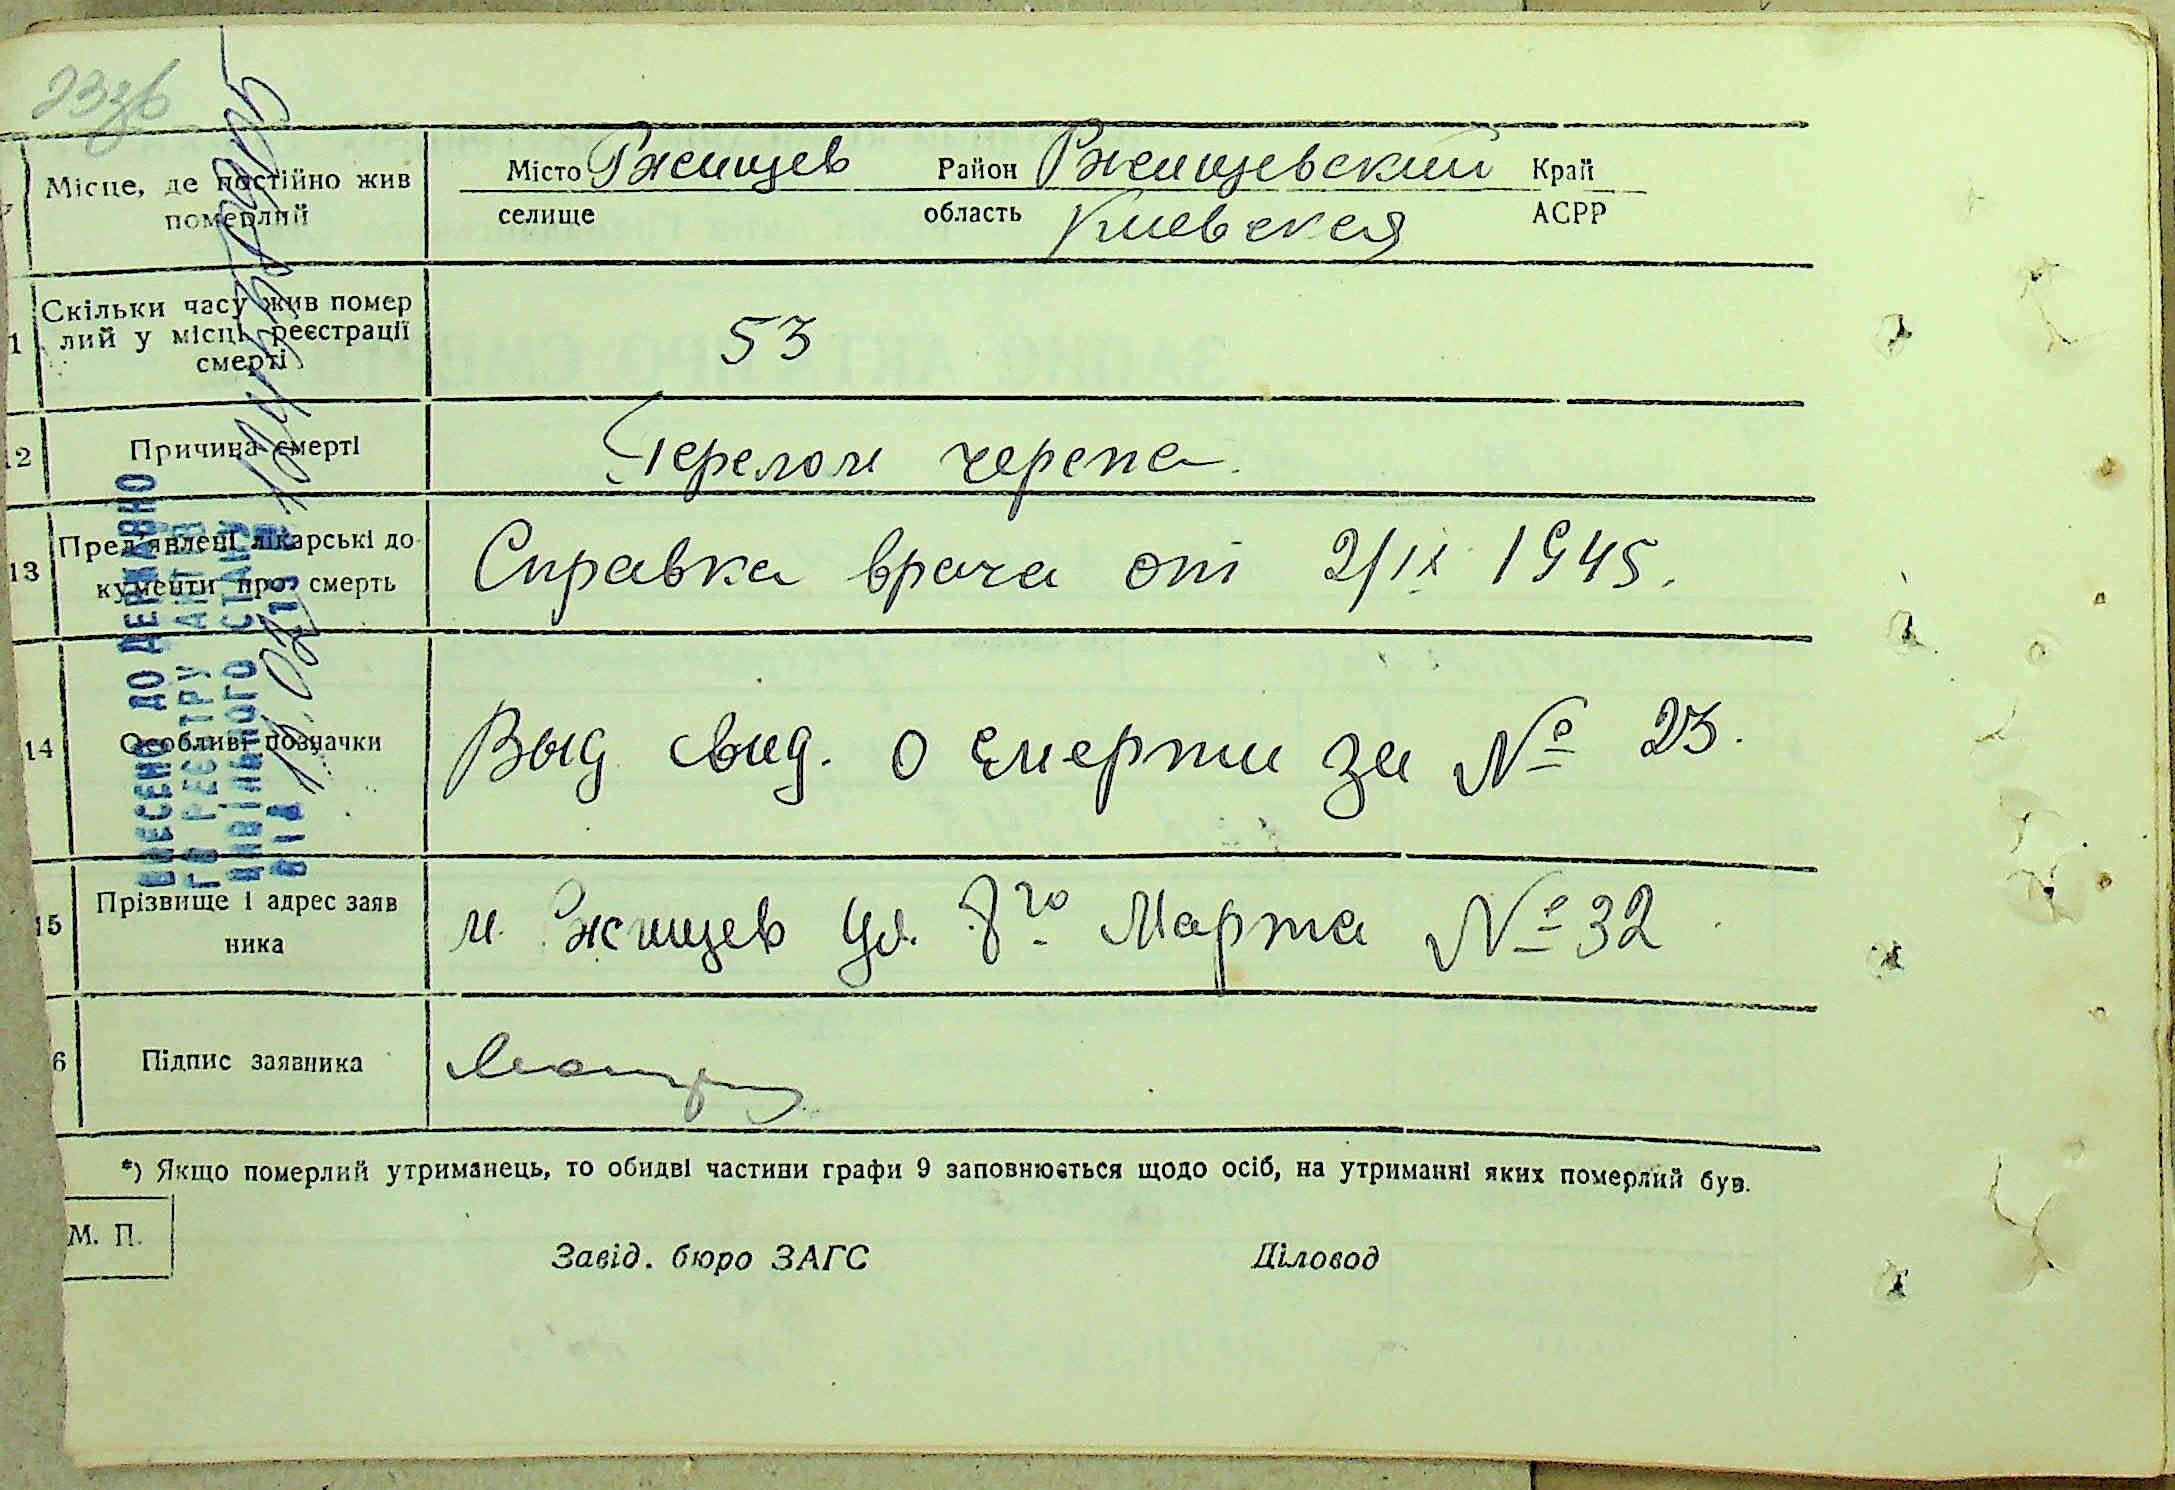 23зв
Місце, де постійно жив
померлий
Місто Ржищев Район Ржищевский Край
селище область Киевская АСРР
1 Скільки часу жив помер
лий у місці реєстрації
смерті
53
12 Причина смерті Перелом черепа.
13 Пред'явлені лікарські до
кументи про смерть
Справка врача от 2/IX 1945.
14 Особливі позначки Выд свид. о смерти за № 23.
15 Прізвище і адрес заяв
ника
м. Ржищев ул. 8го Марта № 32
6 Підпис заявника
*) Якщо померлий утриманець, то обидві частини графи 9 заповнюється щодо осіб, на утриманні яких померлий був.
М. П.
Завід. бюро ЗАГС Діловод
ВНЕСЕНО ДО ДЕРЖАВНО
ГО РЕЄСТРУ АКТІВ
ЦИВІЛЬНОГО СТАНУ
ВІД